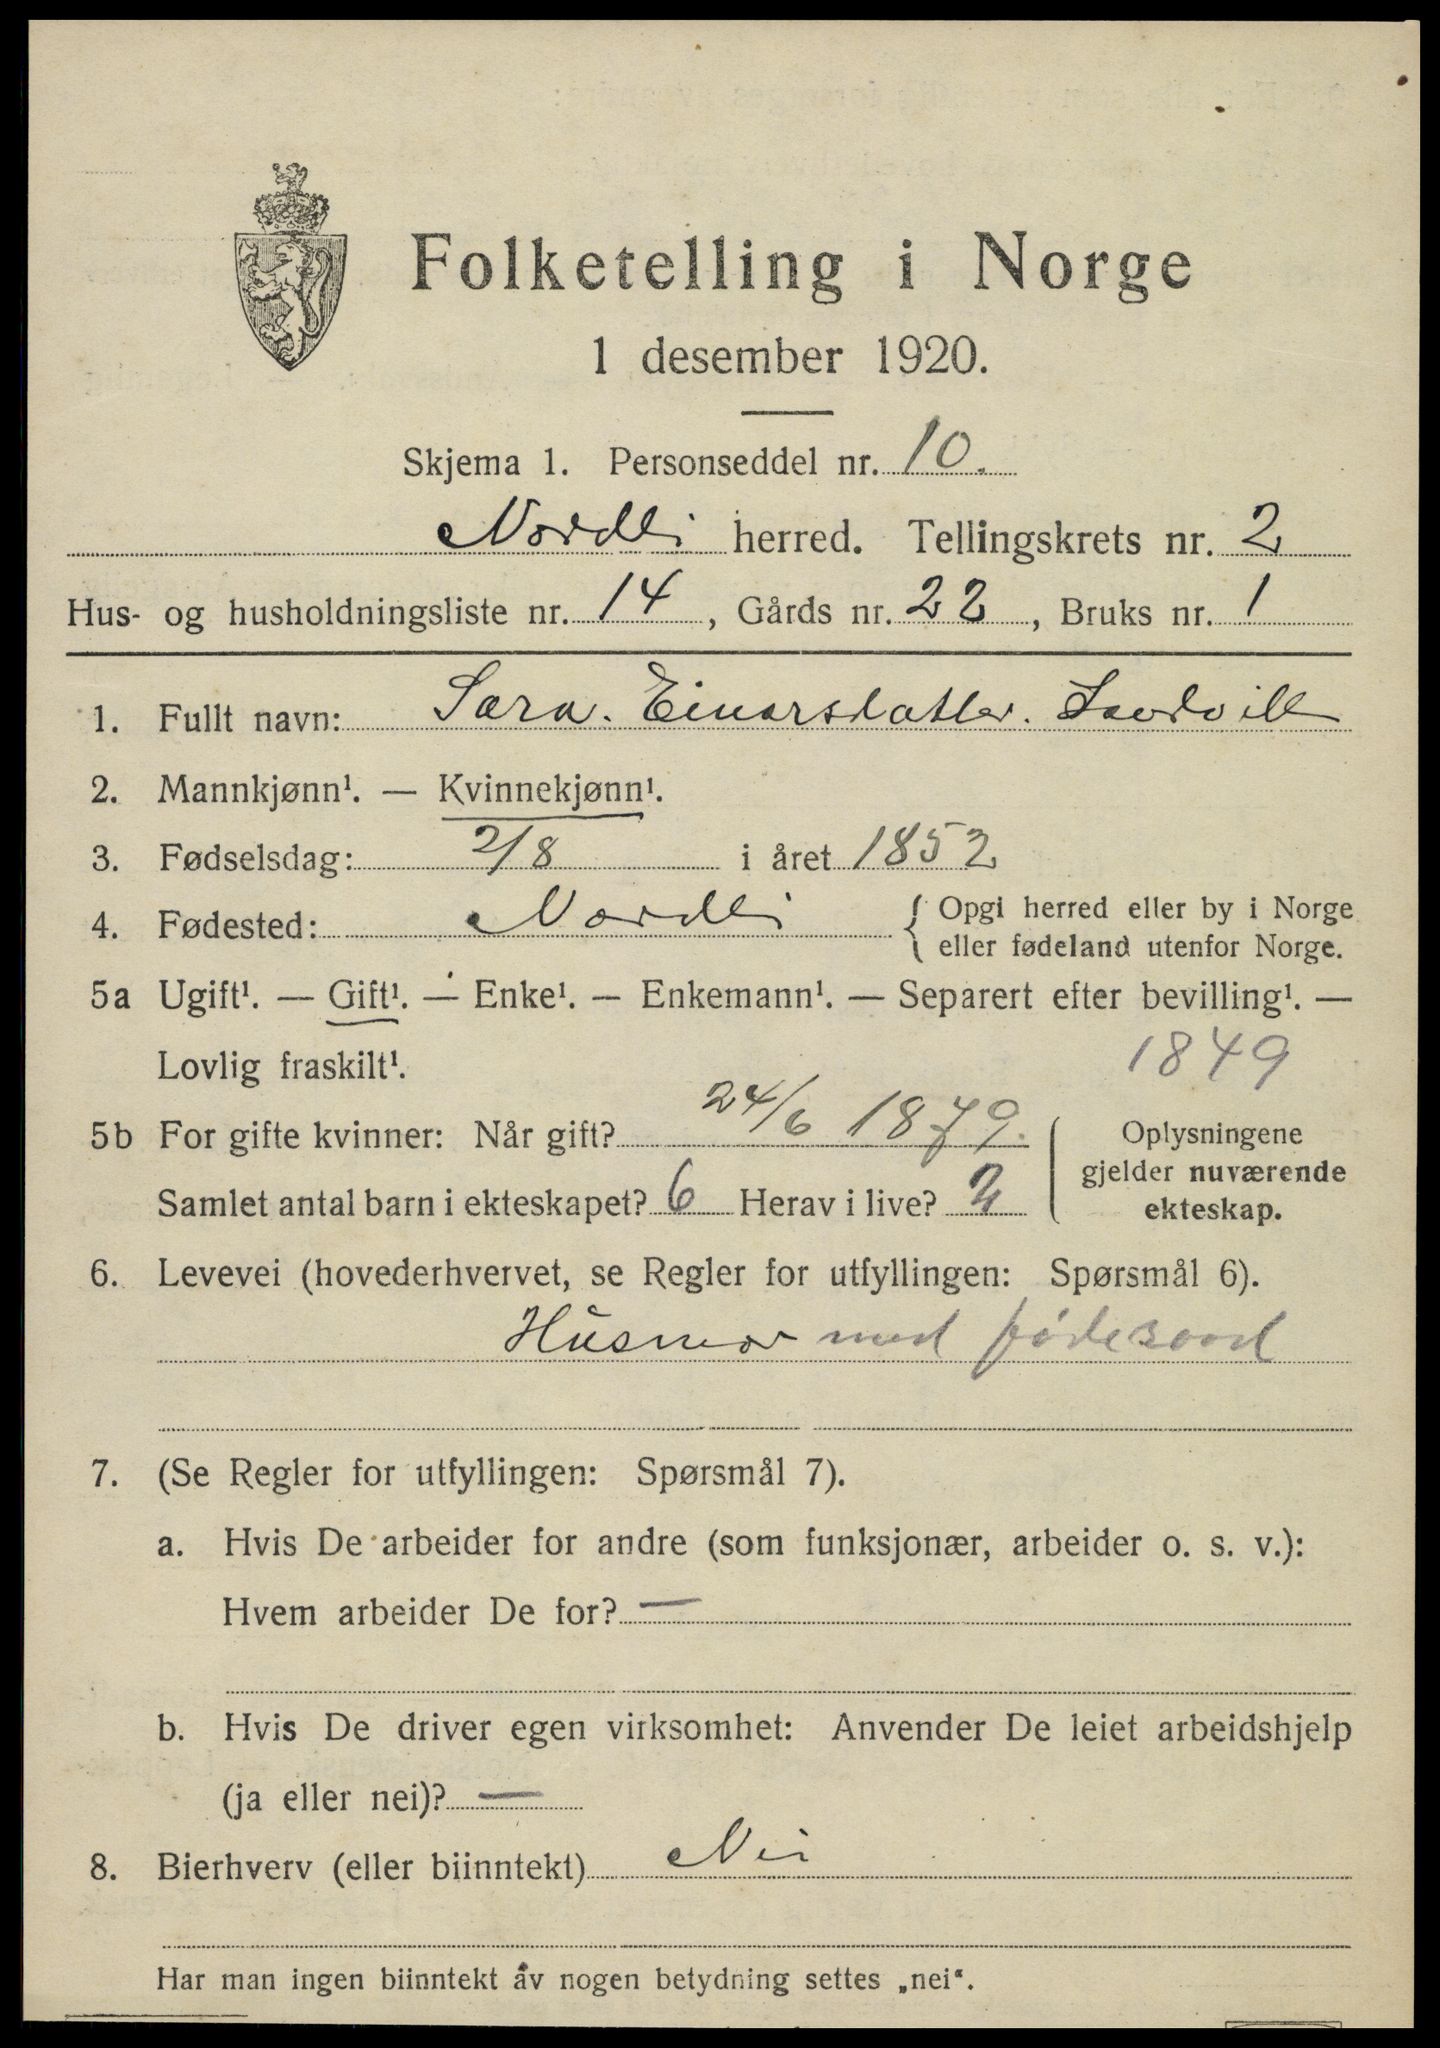 Folketelling i Norge
1 desember 1920.
Skjema 1. Personseddel nr. 10.
Nordli herred. Tellingskrets nr. 2
Hus- og husholdningsliste nr. 14, Gårds nr. 22, Bruks nr. 1
1. Fullt navn: Sara. Einarsdatter.
2. Mannkjønn¹. — Kvinnekjønn¹.
3. Fødselsdag: 2/8 i året 1852
4. Fødested: Nordli { Opgi herred eller by i Norge
eller fødeland utenfor Norge.
5a Ugift¹. — Gift¹. — Enke¹. — Enkemann¹. — Separert efter bevilling¹. —
Lovlig fraskilt¹. 1849
5b For gifte kvinner: Når gift? 24/6 1879.
Samlet antal barn i ekteskapet? 6 Herav i live? 2
Oplysningene
gjelder nuværende
ekteskap.
6. Levevei (hovederhvervet, se Regler for utfyllingen: Spørsmål 6).
Husmor med føderaad
7. (Se Regler for utfyllingen: Spørsmål 7).
a. Hvis De arbeider for andre (som funksjonær, arbeider o. s. v.):
Hvem arbeider De for? —
b. Hvis De driver egen virksomhet: Anvender De leiet arbeidshjelp
(ja eller nei)? —
8. Bierhverv (eller biinntekt) Nei
Har man ingen biinntekt av nogen betydning settes „nei“.